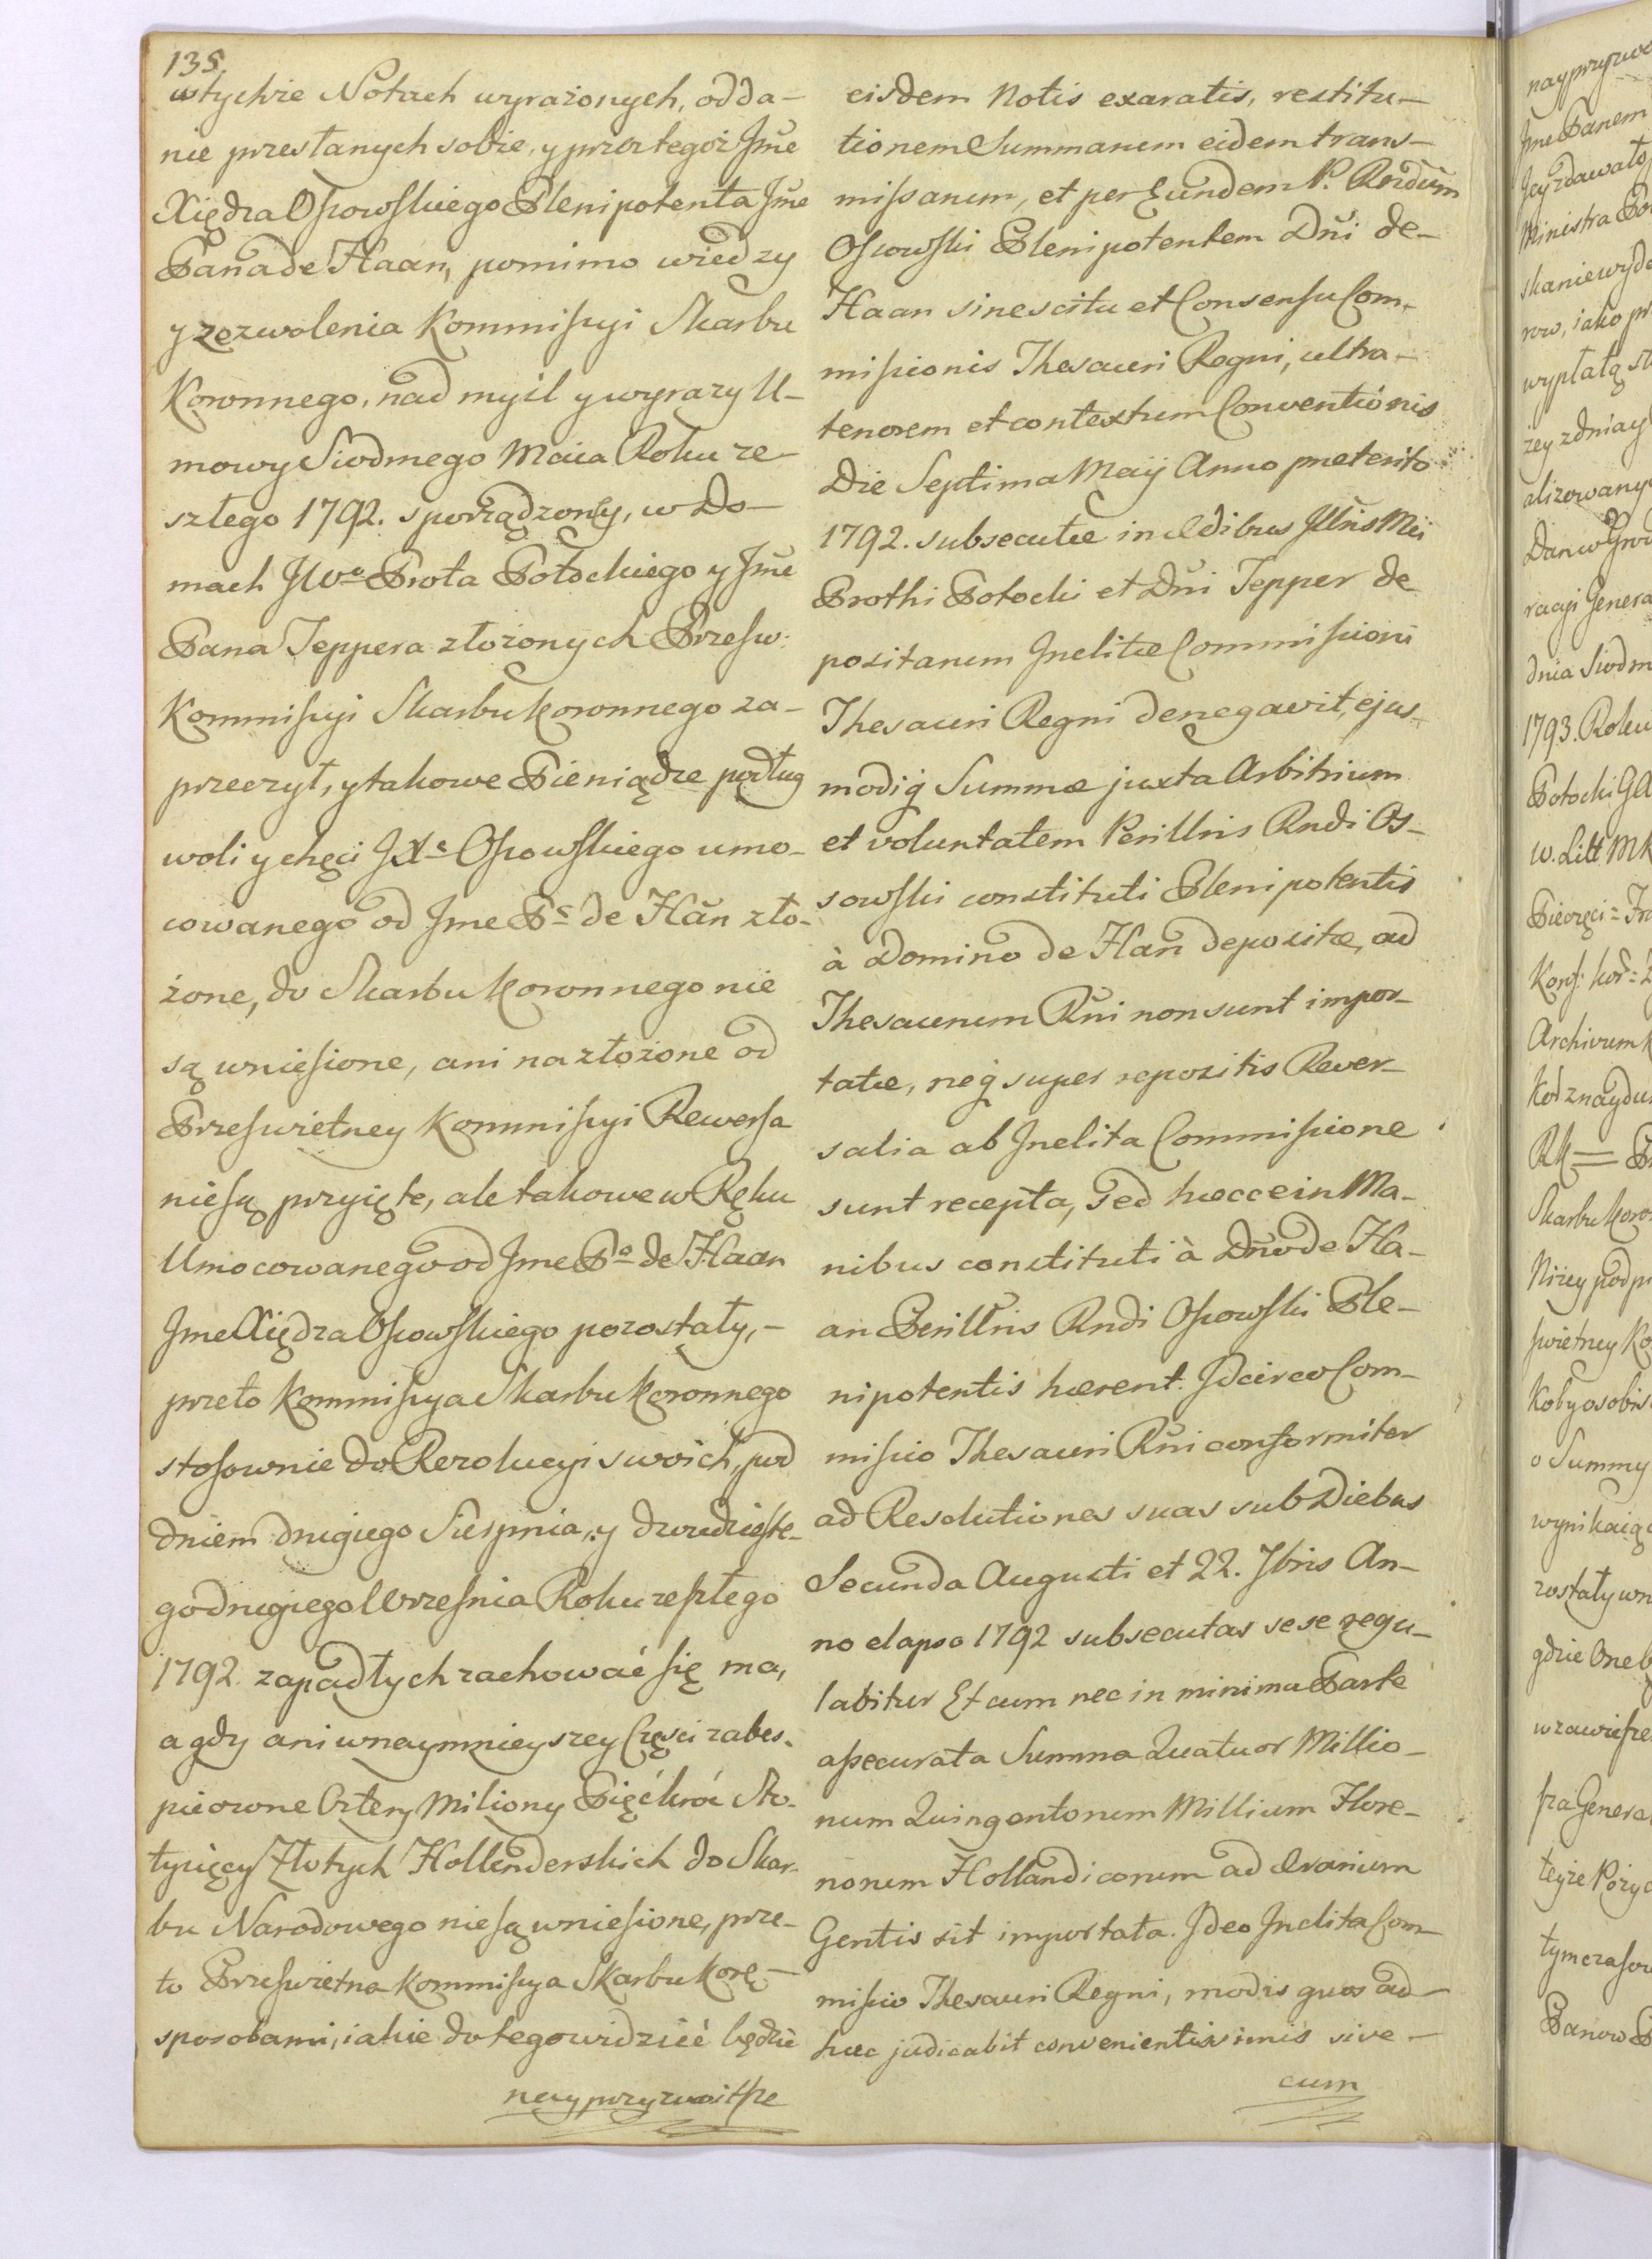 135.
wtychże Notach wyrażonych, odda-
nie przesłanych sobie, y przez tegoż Jm̃e
Xiędza Ossowskiego Plenipotenta Jm̃e
Pana de Haan, pomimo wiedzy
y zezwolenia Kommissyi Skarbu
Koronnego, nad myśl y wyrazy U-
mowy Siodmego Maia Roku ze-
szłego 1792. sporządzoney, w Do-
mach JWo Prota Potockiego y Jm̃e
Pana Teppera złożonych Przesw:
Kommissyi Skarbu Koronnego za-
przeczył, y takowe Pieniądze podług
woli y chęci JXa Ossowskiego umo-
cowanego od Jme Pa de Hãn zło-
żone, do Skarbu Koronnego nie
są wniesione, ani na złożone od
Przeswietney Kommissyi Rewersa
nie są przyięte, ale takowe w Ręku
Umocowanego od Jme Pa de Haan
Jme Xiędza Ossowskiego pozostały,-
przeto Kommissya Skarbu Koronnego
stosownie do Rezolucyi swoich, pod
dniem drugiego Sierpnia, y dwudzieste-
go drugiego Września Roku zeszłego
1792. zapadłych zachować się ma,
a gdy ani w naymnieyszey Części zabes-
pieczone Cztery Miliony Pięćkroć Sto-
tysięcy Złotych Hollenderskich do Skar-
bu Narodowego nie są wniesione, prze-
to Przeswietna Kommissya Skarbu Korę-
sposobami, iakie do tego widzieć będzie
nayprzyzwoitsze
eisdem Notis exaratis, restitu-
tionem Summarum eidem trans-
missarum, et per Eundem P. Rndum
Ossowski Plenipotentem Dñi de-
Haan sine scitu et Consensu Com-
missionis Thesauri Regni, ultra-
tenorem et contextum Conventionis
Die Septima Maÿ Anno præterito
1792. subsecutæ in Ædibus Jllris Mci
Prothi Potocki et Dñi Tepper de
positarum Jnclitæ Commissioni
Thesauri Regni denegavit, ejus-
modiq̃ Summæ juxta Arbitrium
et voluntatem Perillris Rndi Os-
sowski constituti Plenipotentis
à Domino de Hañ depositæ, ad
Thesaurum Rñi non sunt impor-
tatæ, neq̃ super repositis Rever-
salia ab Jnclita Commissione
sunt recepta, sed hæcce in Ma-
nibus constituti à Dño de Ha-
an Perillris Rndi Ossowski Ple-
nipotentis hærent. Jdcirco Com-
missio Thesauri Rñi conformiter
ad Resolutiones suas sub Diebus
Secunda Augusti et 22. 7bris An-
no elapso 1792 subsecutas sese regu-
labitur Et cum nec in minima Parte
assecurata Summa Quatuor Millio-
num Quingentorum Millium Flore-
norum Hollandicorum ad Ærarium
Gentis sit importata. Jdeo Jnclita Com-
missio Thesauri Regni, modis quos ad-
hæc judicabit convenientissimis sive-
cum